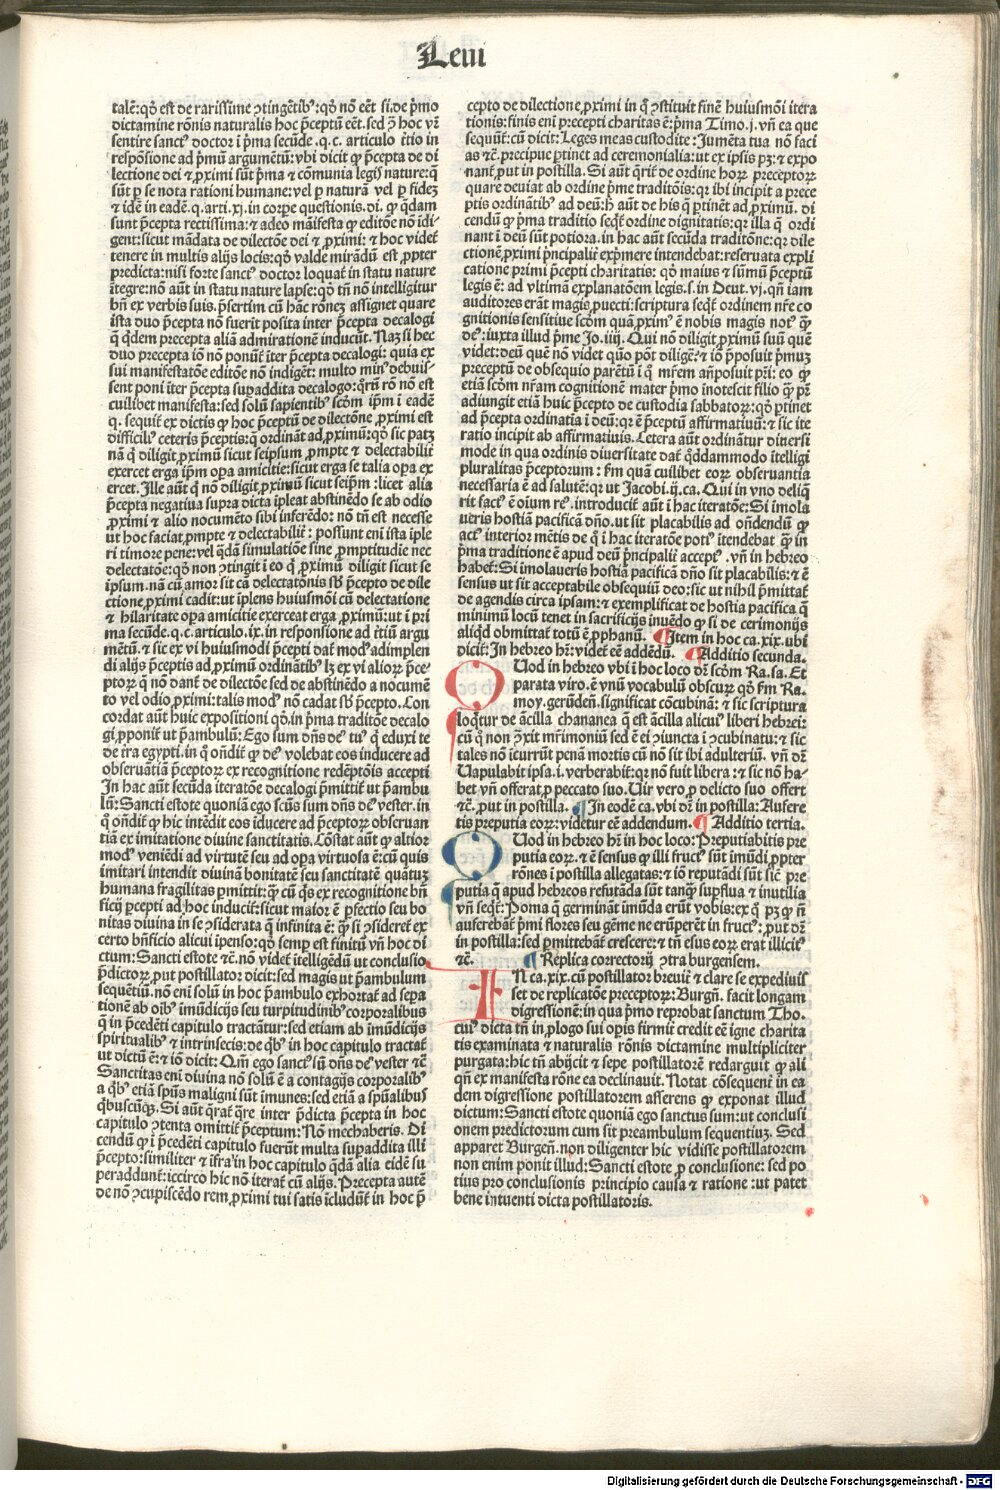 Leui
talē: qḋ est de rarissime ↄtingētibꝰ: qḋ nō eēt si. de p̄mo
dictamine rōnis naturalis hoc p̄ceptū eēt. sed ꝙ hoc vr̄
sentire sanctꝰ doctor i p̄ma secūde .q.c. articulo t̄tio in
respōsione ad p̄mū argumētū: vbi dicit ꝙ p̄cepta de di
lectione dei ⁊ ꝓximi sūt p̄ma ⁊ cōmunia legis nature: q̄
sūt ꝑ se nota rationi humane: vel ꝑ naturā vel ꝑ fidez
⁊ idē in eadē .q. arti. xj. in corpe questionis. di. ꝙ q̄dam
sunt p̄cepta rectissima: ⁊ adeo māifesta ꝙ editōe nō īdi
gent: sicut mādata de dilectōe dei ⁊ ꝓximi: ⁊ hoc videt̄
tenere in multis alijs locis: qḋ valde mirādū est ꝓpter
predicta: nisi forte sanctꝰ doctor loquat̄ in statu nature
ītegre: nō aūt in statu nature lapse: qḋ tn̄ nō intelligitur
bn̄ ex verbis suis. p̄sertim cū hāc rōnez assignet quare
ista duo p̄cepta nō fuerīt posita inter p̄cepta decalogi
q̄ q̄dem precepta aliā admirationē inducūt. Naꝫ si hec
duo precepta iō nō ponūt̄ iter p̄cepta decalogi: quia ex
sui manifestatōe editōe nō indigēt: multo minꝰ debuis
sent poni iter p̄cepta supaddita decalogo: qꝛū rō nō est
cuilibet manifesta: sed solū sapientibꝰ scḋm ip̄m i eadē
q. sequit̄ ex dictis ꝙ hoc p̄ceptū de dilectōne ꝓximi est
difficiliꝰ ceteris p̄ceptis: q̄ ordināt ad ꝓximū: qḋ sic patꝫ
nā q̄ diligit ꝓximū sicut seipsum ꝓmpte ⁊ delectabilit̄
exercet erga ip̄m opa amicitie: sicut erga se talia opa ex
ercet. Ille aūt q̄ nō diligit ꝓximū sicut seip̄m: licet alia
p̄cepta negatiua supra dicta ipleat abstinēdo se ab odio
ꝓximi ⁊ alio nocumēto sibi inferēdo: nō tn̄ est necesse
ut hoc faciat ꝓmpte ⁊ delectabilit̄: possunt eni ista iple
ri timore pene: vel q̄dā simulatiōe sine ꝓmptitudie nec
delectatōe: qḋ non ↄtingit i eo q̄ ꝓximū diligit sicut se
ipsum. nā cū amor sit cā delectatōnis sb̄ p̄cepto de dile
ctione ꝓximi cadit: ut iplens huiusmōi cū delectatione
⁊ hilaritate opa amicitie exerceat erga ꝓximū: ut i pri
ma secūde .q.c. articulo .ix. in responsione ad t̄tiū argu
mētū. ⁊ sic ex vi huiusmodi p̄cepti dat̄ modꝰ adimplen
di alijs p̄ceptis ad ꝓximū ordinātibꝰ lꝫ ex vi alioꝝ p̄ce
ptoꝝ q̄ nō dant̄ de dilectōe sed de abstinēdo a nocumē
to vel odio ꝓximi: talis modꝰ nō cadat sb̄ p̄cepto. Con
cordat aūt huic expositioni qḋ in p̄ma traditōe decalo
gi ꝓponit̄ ut p̄ambulū: Ego sum dn̄s deꝰ tuꝰ q̄ eduxi te
de t̄ra egypti. in q̄ on̄dit̄ ꝙ deꝰ volebat eos inducere ad
obseruātiā p̄ceptoꝝ ex recognitione redēptōis accepti
In hac aūt secūda iteratōe decalogi p̄mittit̄ ut p̄ambu
lū: Sancti estote quoniā ego scūs sum dn̄s deꝰ vester. in
q̄ on̄dit̄ ꝙ hic intēdit eos iducere ad p̄ceptoꝝ obseruan
tiā ex imitatione diuine sanctitatis. Cōstat aūt ꝙ altior
modꝰ veniēdi ad virtutē seu ad opa virtuosa ē: cū quis
imitari intendit diuinā bonitatē seu sanctitatē quātuꝫ
humana fragilitas pmittit: ꝙ cū q̄s ex recognitione bn̄
ficij pcepti ad hoc inducit̄: sicut maior ē pfectio seu bo
nitas diuina in se ↄsiderata q̄ infinita ē: ꝙ si ↄsideret̄ ex
certo bn̄ficio alicui ipenso: qḋ semp est finitū vn̄ hoc di
ctum: Sancti estote ⁊c̄. nō videt̄ itelligēdū ut conclusio
p̄dictoꝝ put postillator dicit: sed magis ut p̄ambulum
sequētiū. nō eni solū in hoc p̄ambulo exhortat̄ ad sepa
tionē ab oibꝰ imūdicijs seu turpitudinibꝰ corporalibus
q̄ in p̄cedēti capitulo tractātur: sed etiam ab imūdicijs
spiritualibꝰ ⁊ intrinsecis: de q̄bꝰ in hoc capitulo tractat̄
ut dictū ē: ⁊ iō dicit: Qm̄ ego sanctꝰ sū dn̄s deꝰ vester ⁊c̄
Sanctitas eni diuina nō solū ē a contagijs corporalibꝰ
a q̄bꝰ etiā sp̄us maligni sūt imunes: sed etiā a sp̄ualibus
q̄buscūqꝫ. Si aūt q̄rat̄ q̄re inter p̄dicta p̄cepta in hoc
capitulo ↄtenta omittit̄ p̄ceptum: Nō mechaberis. Di
cendū ꝙ i p̄cedēti capitulo fuerūt multa supaddita illi
p̄cepto: similiter ⁊ ifra in hoc capitulo q̄dā alia eidē su
peraddunt̄: iccirco hic nō iterat̄ cū alijs. Precepta autē
de nō ↄcupiscēdo rem ꝓximi tui satis icludūt̄ in hoc p̄
cepto de dilectione ꝓximi in q̄ ↄstituit finē huiusmōi itera
tionis: finis eni precepti charitas ē: p̄ma Timo. j. vn̄ ea que
sequūt̄: cū dicit: Leges meas custodite: Jumēta tua nō faci
as ⁊c̄. precipue ptinet ad ceremonialia: ut ex ipsis pꝫ: ⁊ expo
nant̄ put in postilla. Si aūt q̄rit̄ de ordine hoꝝ preceptoꝝ
quare deuiat ab ordine p̄me traditōis: qꝛ ibi incipit a prece
ptis ordinātibꝰ ad deū: h̄ aūt de his q̄ ptinēt ad ꝓximū. di
cendū ꝙ p̄ma traditio seq̄t̄ ordinē dignitatis: qꝛ illa q̄ ordi
nant i deū sūt potiora. in hac aūt secūda traditōne: qꝛ dile
ctionē ꝓximi p̄ncipalit̄ exp̄mere intendebat: reseruata expli
catione primi p̄cepti charitatis: qḋ maius ⁊ sūmū p̄ceptū
legis ē: ad vltimā explanatōem legis. s. in Deut. vj. qn̄ iam
auditores erāt magis ꝓuecti: scriptura seq̄t̄ ordinem nr̄e co
gnitionis sensitiue scḋm quā ꝓximꝰ ē nobis magis notꝰ ꝙ
deꝰ: iuxta illud p̄me Jo. iiij. Qui nō diligit ꝓximū suū quē
videt: deū quē nō videt quō pōt diligē? ⁊ iō p̄posuit p̄muꝫ
preceptū de obsequio parētū i q̄ mr̄em an̄posuit pr̄i: eo ꝙ
etiā scḋm nr̄am cognitionē mater p̄mo inotescit filio ꝙ pr̄
adiungit etiā huic p̄cepto de custodia sabbatoꝝ: qḋ ptinet
ad p̄cepta ordinatia i deū: qꝛ ē p̄ceptū affirmatiuū: ⁊ sic ite
ratio incipit ab affirmatiuis. Cetera aūt ordināt̄ur diuersi
mode in qua ordinis diuersitate dat̄ q̄ddammodo itelligi
pluralitas p̄ceptorum: fm quā cuilibet eoꝝ obseruantia
necessaria ē ad salutē: qꝛ ut Jacobi. ij. ca. Qui in vno deliq̄
rit factꝰ ē oium reꝰ. introducit̄ aūt i hac iteratōe: Si imola
ueris hostiā pacificā dn̄o. ut sit placabilis ad on̄dendū ꝙ
actꝰ interior mētis de q̄ i hac iteratōe potiꝰ itendebat ꝙ in
p̄ma traditione ē apud deū p̄ncipalit̄ acceptꝰ. vn̄ in hebreo
habet̄: Si imolaueris hostiā pacificā dn̄o sit placabilis: ⁊ ē
sensus ut sit acceptabile obsequiū deo: sic ut nihil p̄mittat̄
de agendis circa ipsam: ⁊ exemplificat de hostia pacifica q̄
minimū locū tenet in sacrificijs inuēdo ꝙ si de cerimonijs
aliq̄d obmittat̄ totū ē ꝓphanū. ¶ Item in hoc ca. xix. ubi
dicit̄: In hebreo hr̄: videt̄ eē addēdū. ¶ Additio secunda.
QUod in hebreo vbi i hoc loco dr̄ scḋm Ra. sa. Et
parata viro. ē vnū vocabulū obscuꝝ qḋ fm Ra.
moy. gerūden. significat cōcubinā: ⁊ sic scriptura
loq̄tur de ācilla chananea q̄ est ācilla alicuiꝰ liberi hebrei:
cū q̄ non ↄxit mr̄imoniū sed ē ei ↄiuncta i ↄcubinatu: ⁊ sic
tales nō icurrūt penā mortis cū nō sit ibi adulteriū. vn̄ dr̄
Uapulabit ipsa. i. verberabit̄: qꝛ nō fuit libera: ⁊ sic nō ha-
bet vn̄ offerat ꝓ peccato suo. Uir vero ꝓ delicto suo offert
⁊c̄. put in postilla. ¶ In eodē ca. vbi dr̄ in postilla: Aufere
tis preputia eoꝝ: videtur eē addendum. ¶ Additio tertia.
QUod in hebreo hr̄ in hoc loco: Preputiabitis pre
putia eoꝝ. ⁊ ē sensus ꝙ illi fructꝰ sūt imūdi ꝓpter
rōnes i postilla allegatas: ⁊ iō reputādi sūt sic̄ pre
putia q̄ apud hebreos refutāda sūt tanꝙ supflua ⁊ inutilia
vn̄ seq̄t̄: Poma q̄ germināt imūda erūt vobis: ex q̄ pꝫ ꝙ n̄
auferebāt̄ pmi flores seu gēme ne erūperēt in fructꝰ: put dr̄
in postilla: sed pmittebāt̄ crescere: ⁊ tn̄ esus eoꝝ erat illicitꝰ
⁊c̄. ¶ Replica correctorij ↄtra burgensem.
IN ca. xix. cū postillator breuit̄ ⁊ clare se expediuis
set de replicatōe preceptoꝝ: Burgn̄. facit longam
digressionē: in qua p̄mo reprobat sanctum Tho.
cuiꝰ dicta tn̄ in plogo sui opis firmit̄ credit eē igne charita
tis examinata ⁊ naturalis rōnis dictamine multipliciter
purgata: hic tn̄ abijcit ⁊ sepe postillatorē redarguit ꝙ ali
qn̄ ex manifesta rōne ea declinauit. Notat cōsequēt̄ in ea
dem digressione postillatorem asserens ꝙ exponat illud
dictum: Sancti estote quoniā ego sanctus sum: ut conclusi
onem predictorum cum sit preambulum sequentiuꝫ. Sed
apparet Burgen̄. non diligenter hic vidisse postillatorem
non enim ponit illud: Sancti estote ꝓ conclusione: sed po
tius pro conclusionis principio causa ⁊ ratione: ut patet
bene intuenti dicta postillatoris.
Digitalisierung gefördert durch die Deutsche Forschungsgemeinschaft - DFG